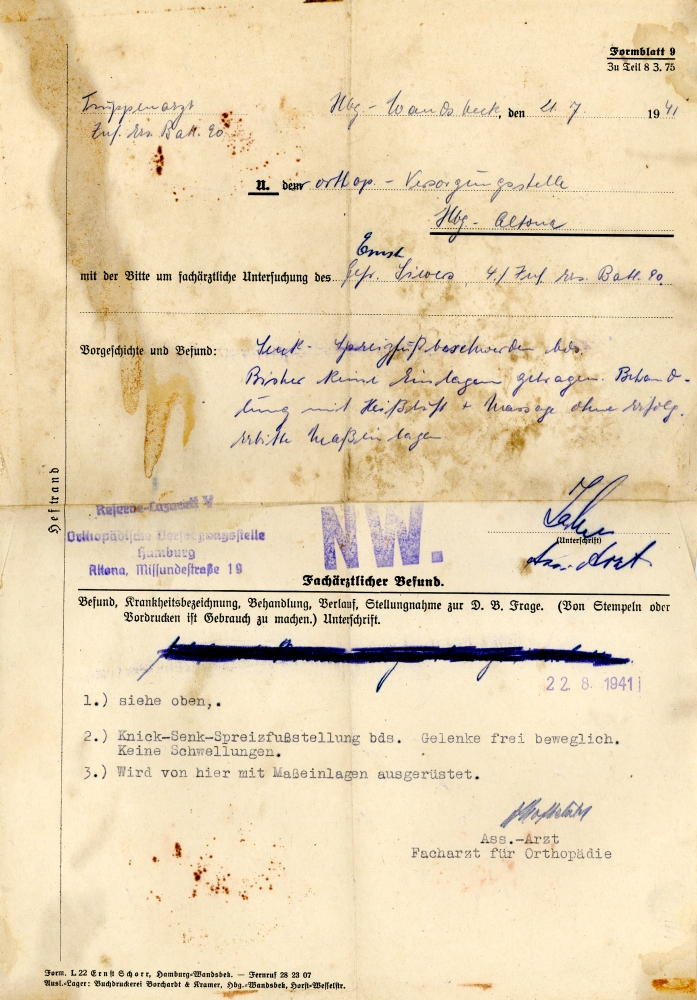 Formblatt 9
Zu Teil 8 Z. 75
Truppenarzt
Inf. Ers. Batl. 90
Hbg - Wandsbeck, den 21 7 1941
U. dem orthop. - Versorgungsstelle
Hbg - Altona
Ernst
mit der Bitte um fachärztliche Untersuchung des Gefr. Siwers, 4./ Inf. Ers. Batl. 90.
Vorgeschichte und Befund: Senk- Spreizfußbeschwerden bds.
Bisher keine Einlagen getragen. Behand-
lung mit Heißluft + Massage ohne Erfolg.
Erbitte Maßeinlagen
Heftrand
Reserve-Lazarett V
Orthopädische Versorgungsstelle
Hamburg
Altona, Missundestraße 19
NW.
(Unterschrift)
Ass. Arzt
Fachärztlicher Befund.
Befund, Krankheitsbezeichnung, Behandlung, Verlauf, Stellungnahme zur D. B. Frage. (Von Stempeln oder
Vordrucken ist Gebrauch zu machen.) Unterschrift.
22. 8. 1941
1.) siehe oben,.
2.) Knick-Senk-Spreizfußstellung bds. Gelenke frei beweglich.
Keine Schwellungen.
3.) Wird von hier mit Maßeinlagen ausgerüstet.
Ass.-Arzt
Facharzt für Orthopädie
Form. L 22 Ernst Schorr, Hamburg-Wandsbek. — Fernruf 28 23 07
Ausl.-Lager: Buchdruckerei Borchardt & Kramer, Hbg.-Wandsbek, Horst-Wesselstr.